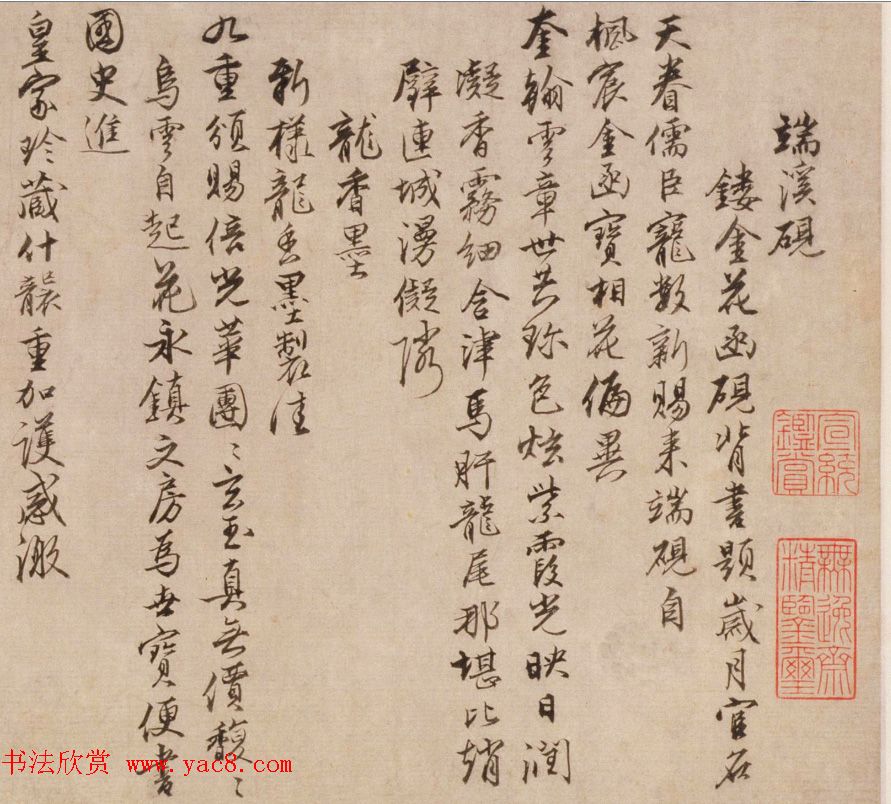 端溪硯
鏤金花函硯背書題歲月官名
天眷儒臣寵數新賜来端硯自
楓宸金函寶相花偏異
奎翰雲章世共珎色炫紫霞光映日潤
凝香霧細含津馬肝龍尾那堪比趙
璧連城漫儗隣
龍香墨
新樣龍香墨製佳
九重頒賜倍光華團〻玄玉真無價馥〻
烏雲自起花永鎮文房為世寶便書
國史進
皇家珍藏什襲重加護感激
宣統鑑賞
無逸齋精鑒璽
书法欣赏 www.yac8.com